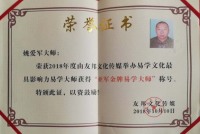 荣誉证书
姚爱军大师：
荣获2018年度由友邦文化传媒举办易学文化最
具影响力易学大师获得“金牌易学大师”称号。
特颁此证，以资鼓励
友邦文化传媒
2018年10月10日